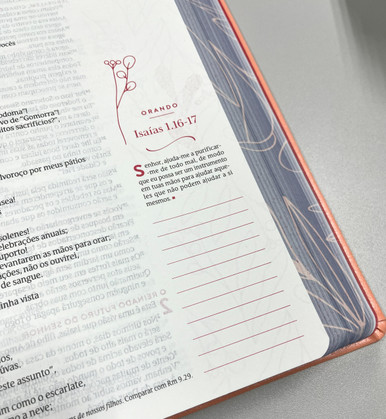 vocês
odoma"!
vo de "Gomorra"!
itos sacrifícios?",
lvoroço por meus pátios
sea!
solenes!
elebrações anuais;
suporto!
evantarem as mãos para orar;
ções, não os ouvirei,
de sangue.
inha vista
os,
úvas.
este assunto",
om o escarlate.
mo a neve:
de nossos filhos. Comparar com Rm 9.29.
ORANDO
Isaías 1.16-17
Senhor, ajuda-me a purificar-
-me de todo mal, de modo
que eu possa ser um instrumento
em tuas mãos para ajudar aque-
les que não podem ajudar a si
mesmos.